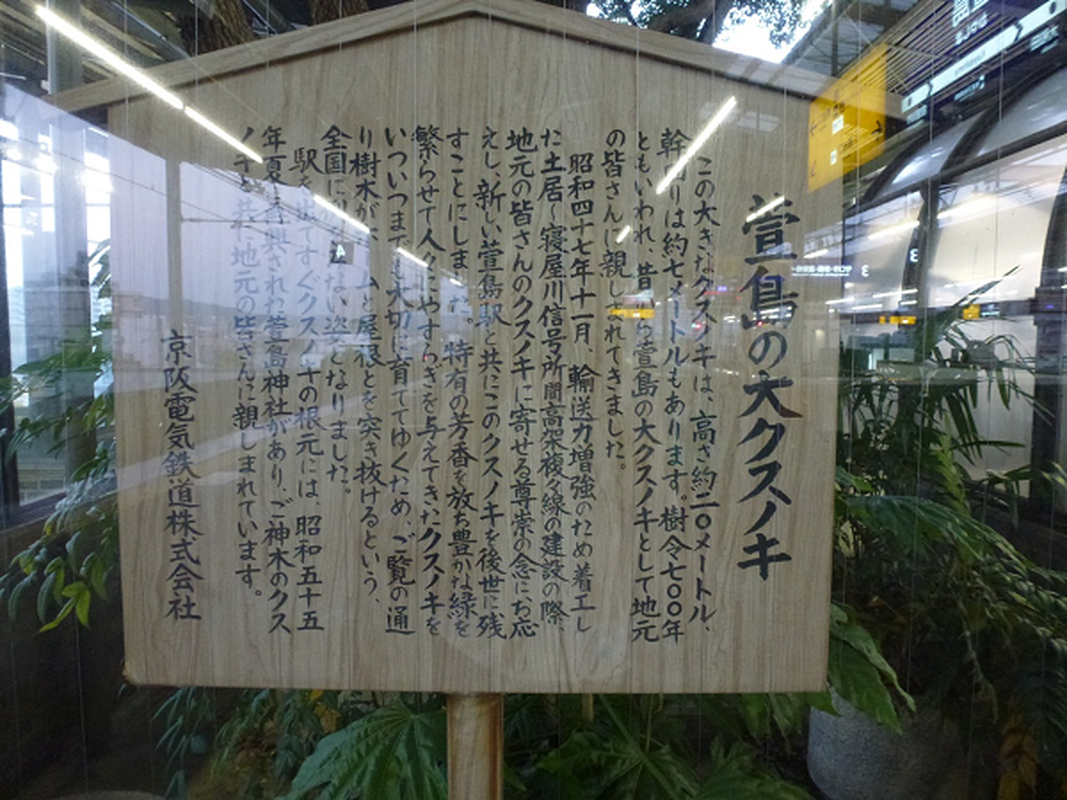 萱島の大クスノキ
この大きなクスノキは、高さ約二〇メートル、
幹りは約七メートルもあります。樹令七〇〇年
ともいわれ、昔から萱島の大クスノキとして地元
の皆さんに親しまれてきました。
昭和四十七年十一月、輸送力増強のため着工し
た土居〜寝屋川信号所間高架複々線の建設の際、
地元の皆さんのクスノキに寄せる尊崇の念にお応
えし、新しい萱島駅と共にこのクスノキを後世に残
すことにしました。特有の芳香を放ち豊かな緑を
繁らせて人々にやすらぎを与えてきたクスノキを
いついつまでも大切に育ててゆくため、ご覧の通
り樹木が、ムと屋根とを突き抜けるという、
全国にない姿となりました。
駅を出てすぐクスノキの根元には、昭和五十五
年夏再興された萱島神社があり、ご神木のクス
ノキと共に地元の皆さんに親しまれています。
京阪電気鉄道株式会社
4
3